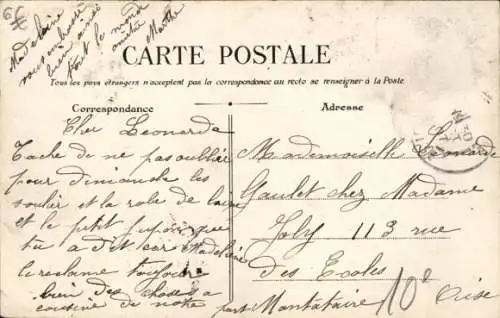 Madeleine
vous embrasse
bien ainsi
tout le monde
Marthe
CARTE POSTALE
Tous les pays étrangers n'acceptent pas la correspondance au recto se renseigner à la Poste
Correspondance
Adresse
Cher Leonarda
Tache de ne pas oublier
pour dimanche les
soulier et la robe de laine
et le petit jupon que
tu a dit car Madeleine
le reclame toujours
bien des choses a
cousine de notre part
Mademoiselle Leonarda
Gaulet chez Madame
Joly 113 rue
des Ecoles
Montataire
Oise